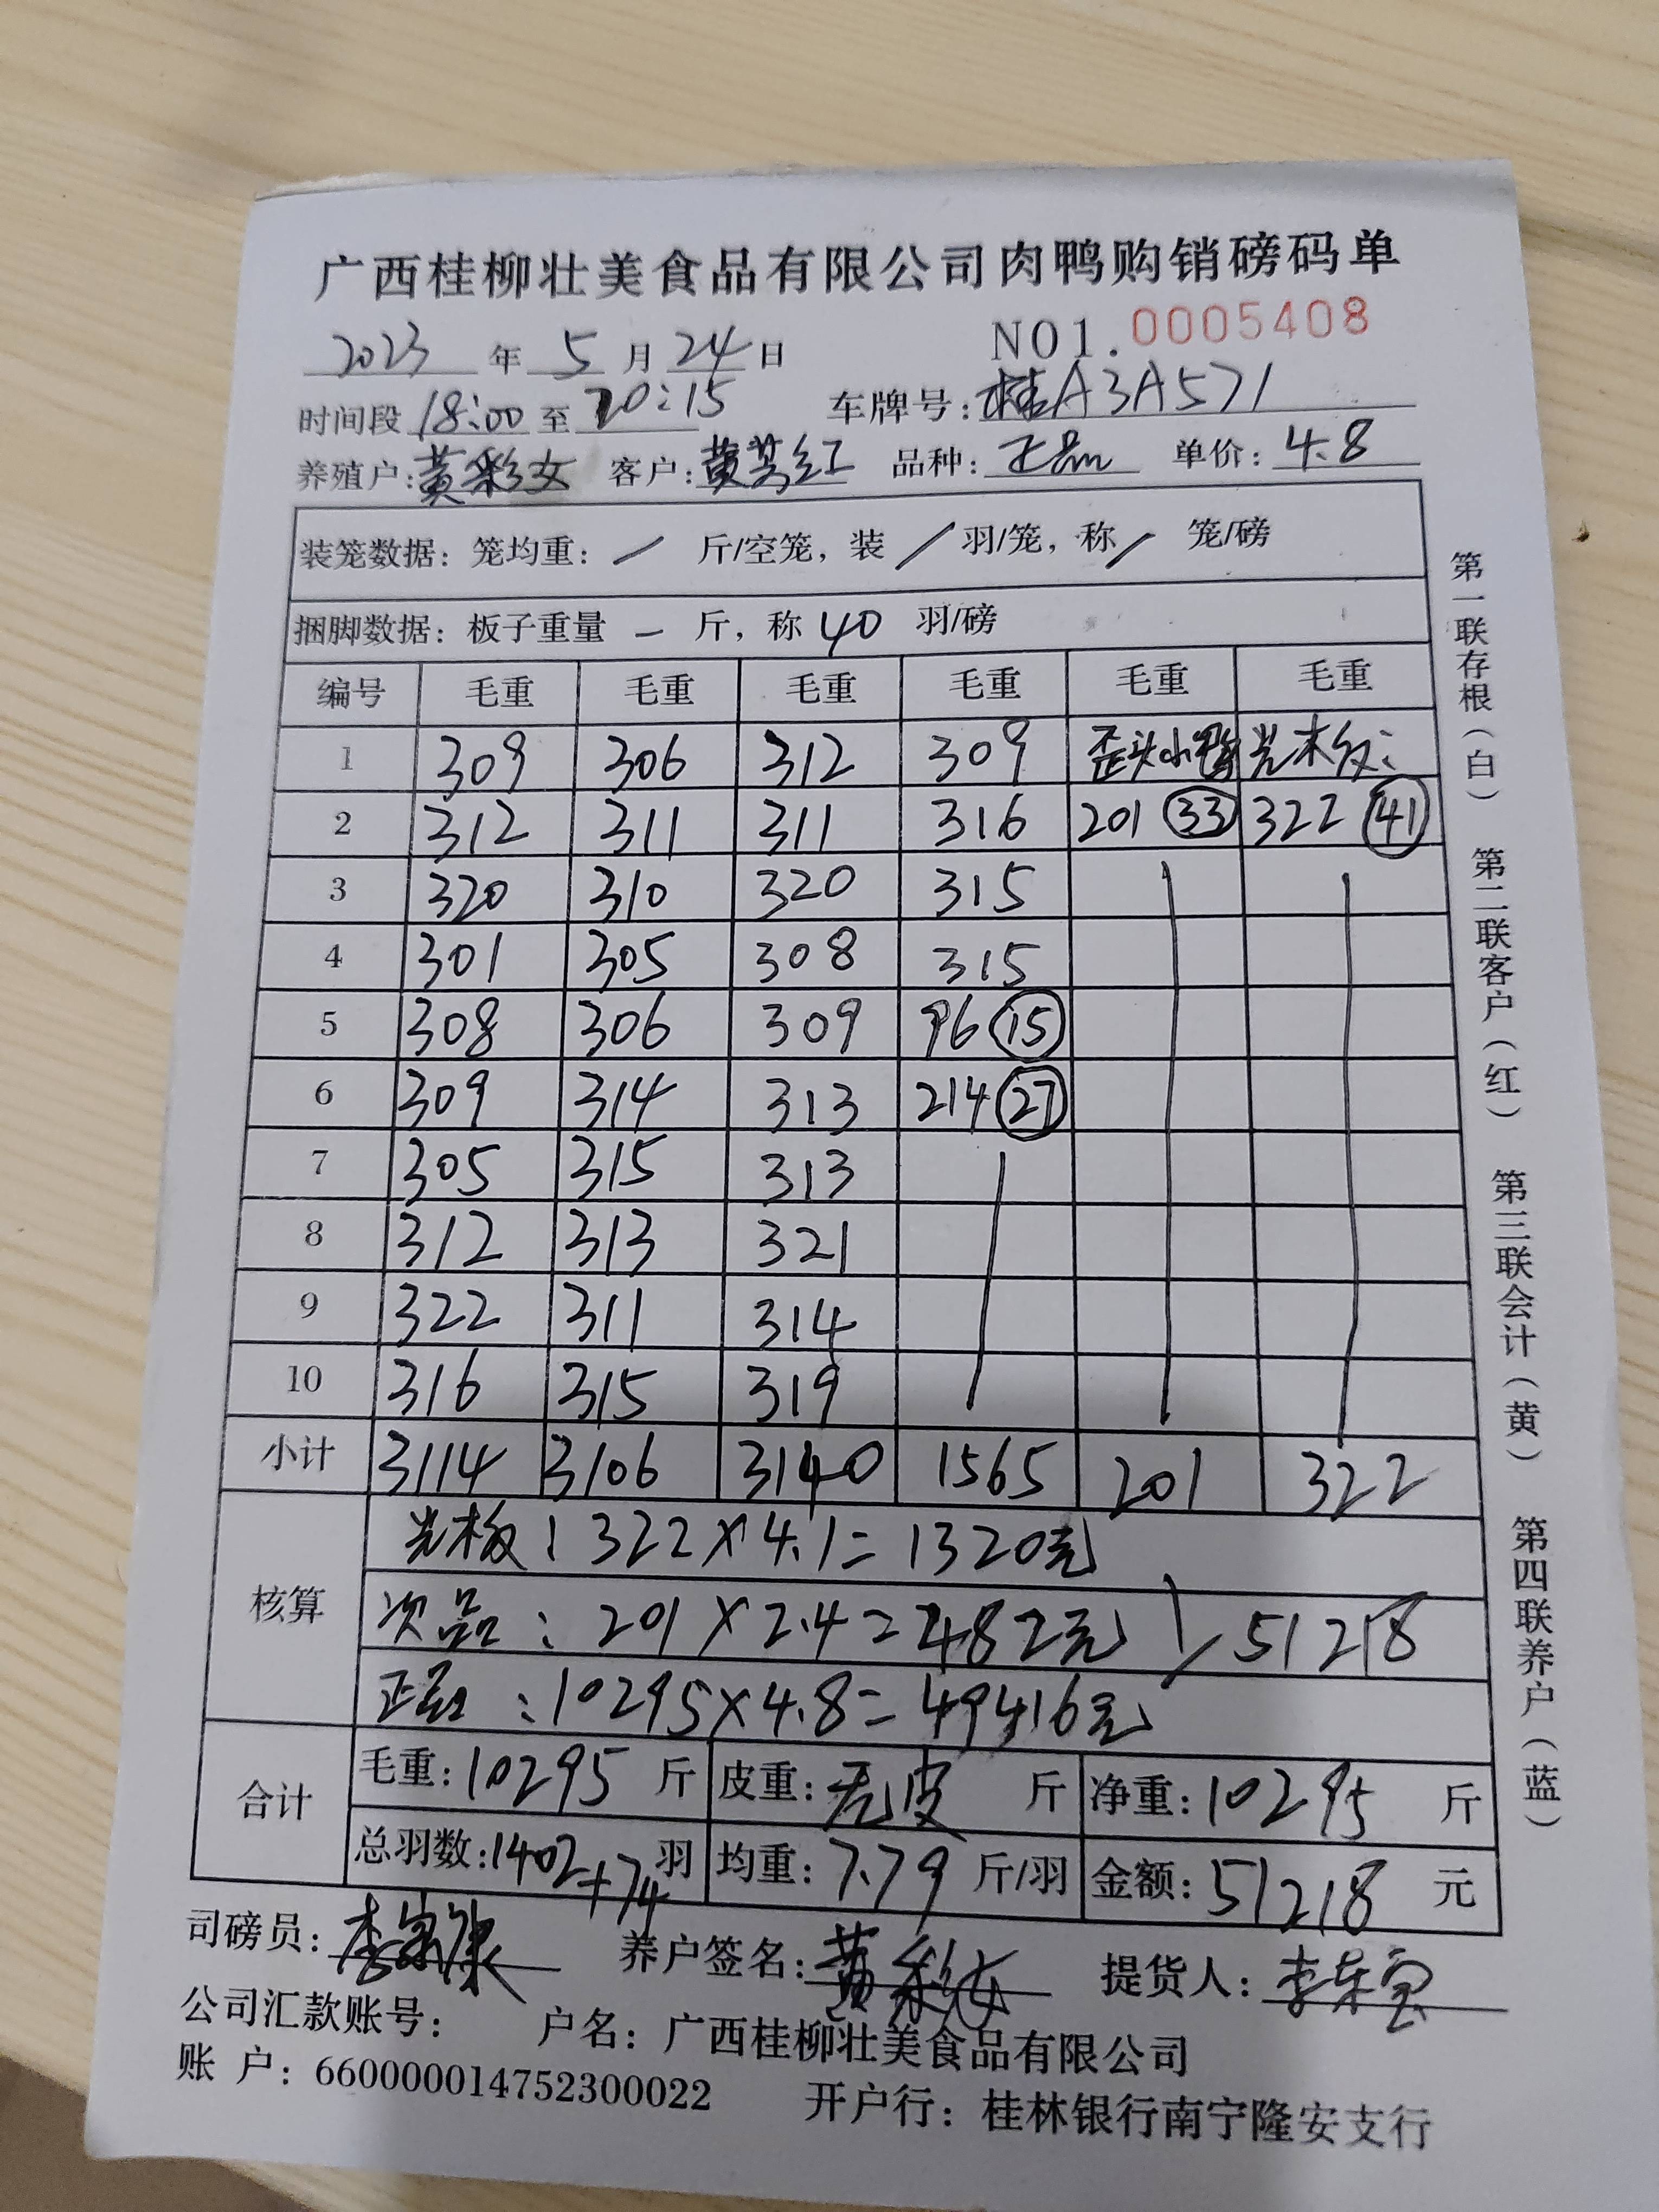 广西桂柳壮美食品有限公司肉鸭购销磅码单
2023年5月24日 NO1.0005408
时间段18:00至20:15 车牌号:桂A3A571
养殖户:黄彩女 客户:黄 红 品种:正品 单价:4.8
装笼数据:笼均重:/ 斤/空笼,装/羽/笼,称/笼/磅
捆脚数据:板子重量 - 斤,称40羽/磅
编号 毛重 毛重 毛重 毛重 毛重 毛重
1 309 306 312 309 歪头小鸭 光木板:
2 312 311 311 316 201 33 322 41
3 320 310 320 315
4 301 305 308 315
5 308 306 309 96 15
6 309 314 313 214 27
7 305 315 313
8 312 313 321
9 322 311 314
10 316 315 319
小计 3114 3106 3140 1565 201 322
核算 光木板:322×4.1=1320元
次品:201×2.4=482元 51218
正品:10295×4.8=49416元
合计 毛重:10295斤 皮重:无皮斤 净重:10295斤
总羽数:1402+74羽 均重:7.79斤/羽 金额:51218元
司磅员:李 养户签名:黄彩女 提货人:李
公司汇款账号: 户名:广西桂柳壮美食品有限公司
账 户:660000014752300022 开户行:桂林银行南宁隆安支行
第一联存根(白) 第二联客户(红) 第三联会计(黄) 第四联养户(蓝)